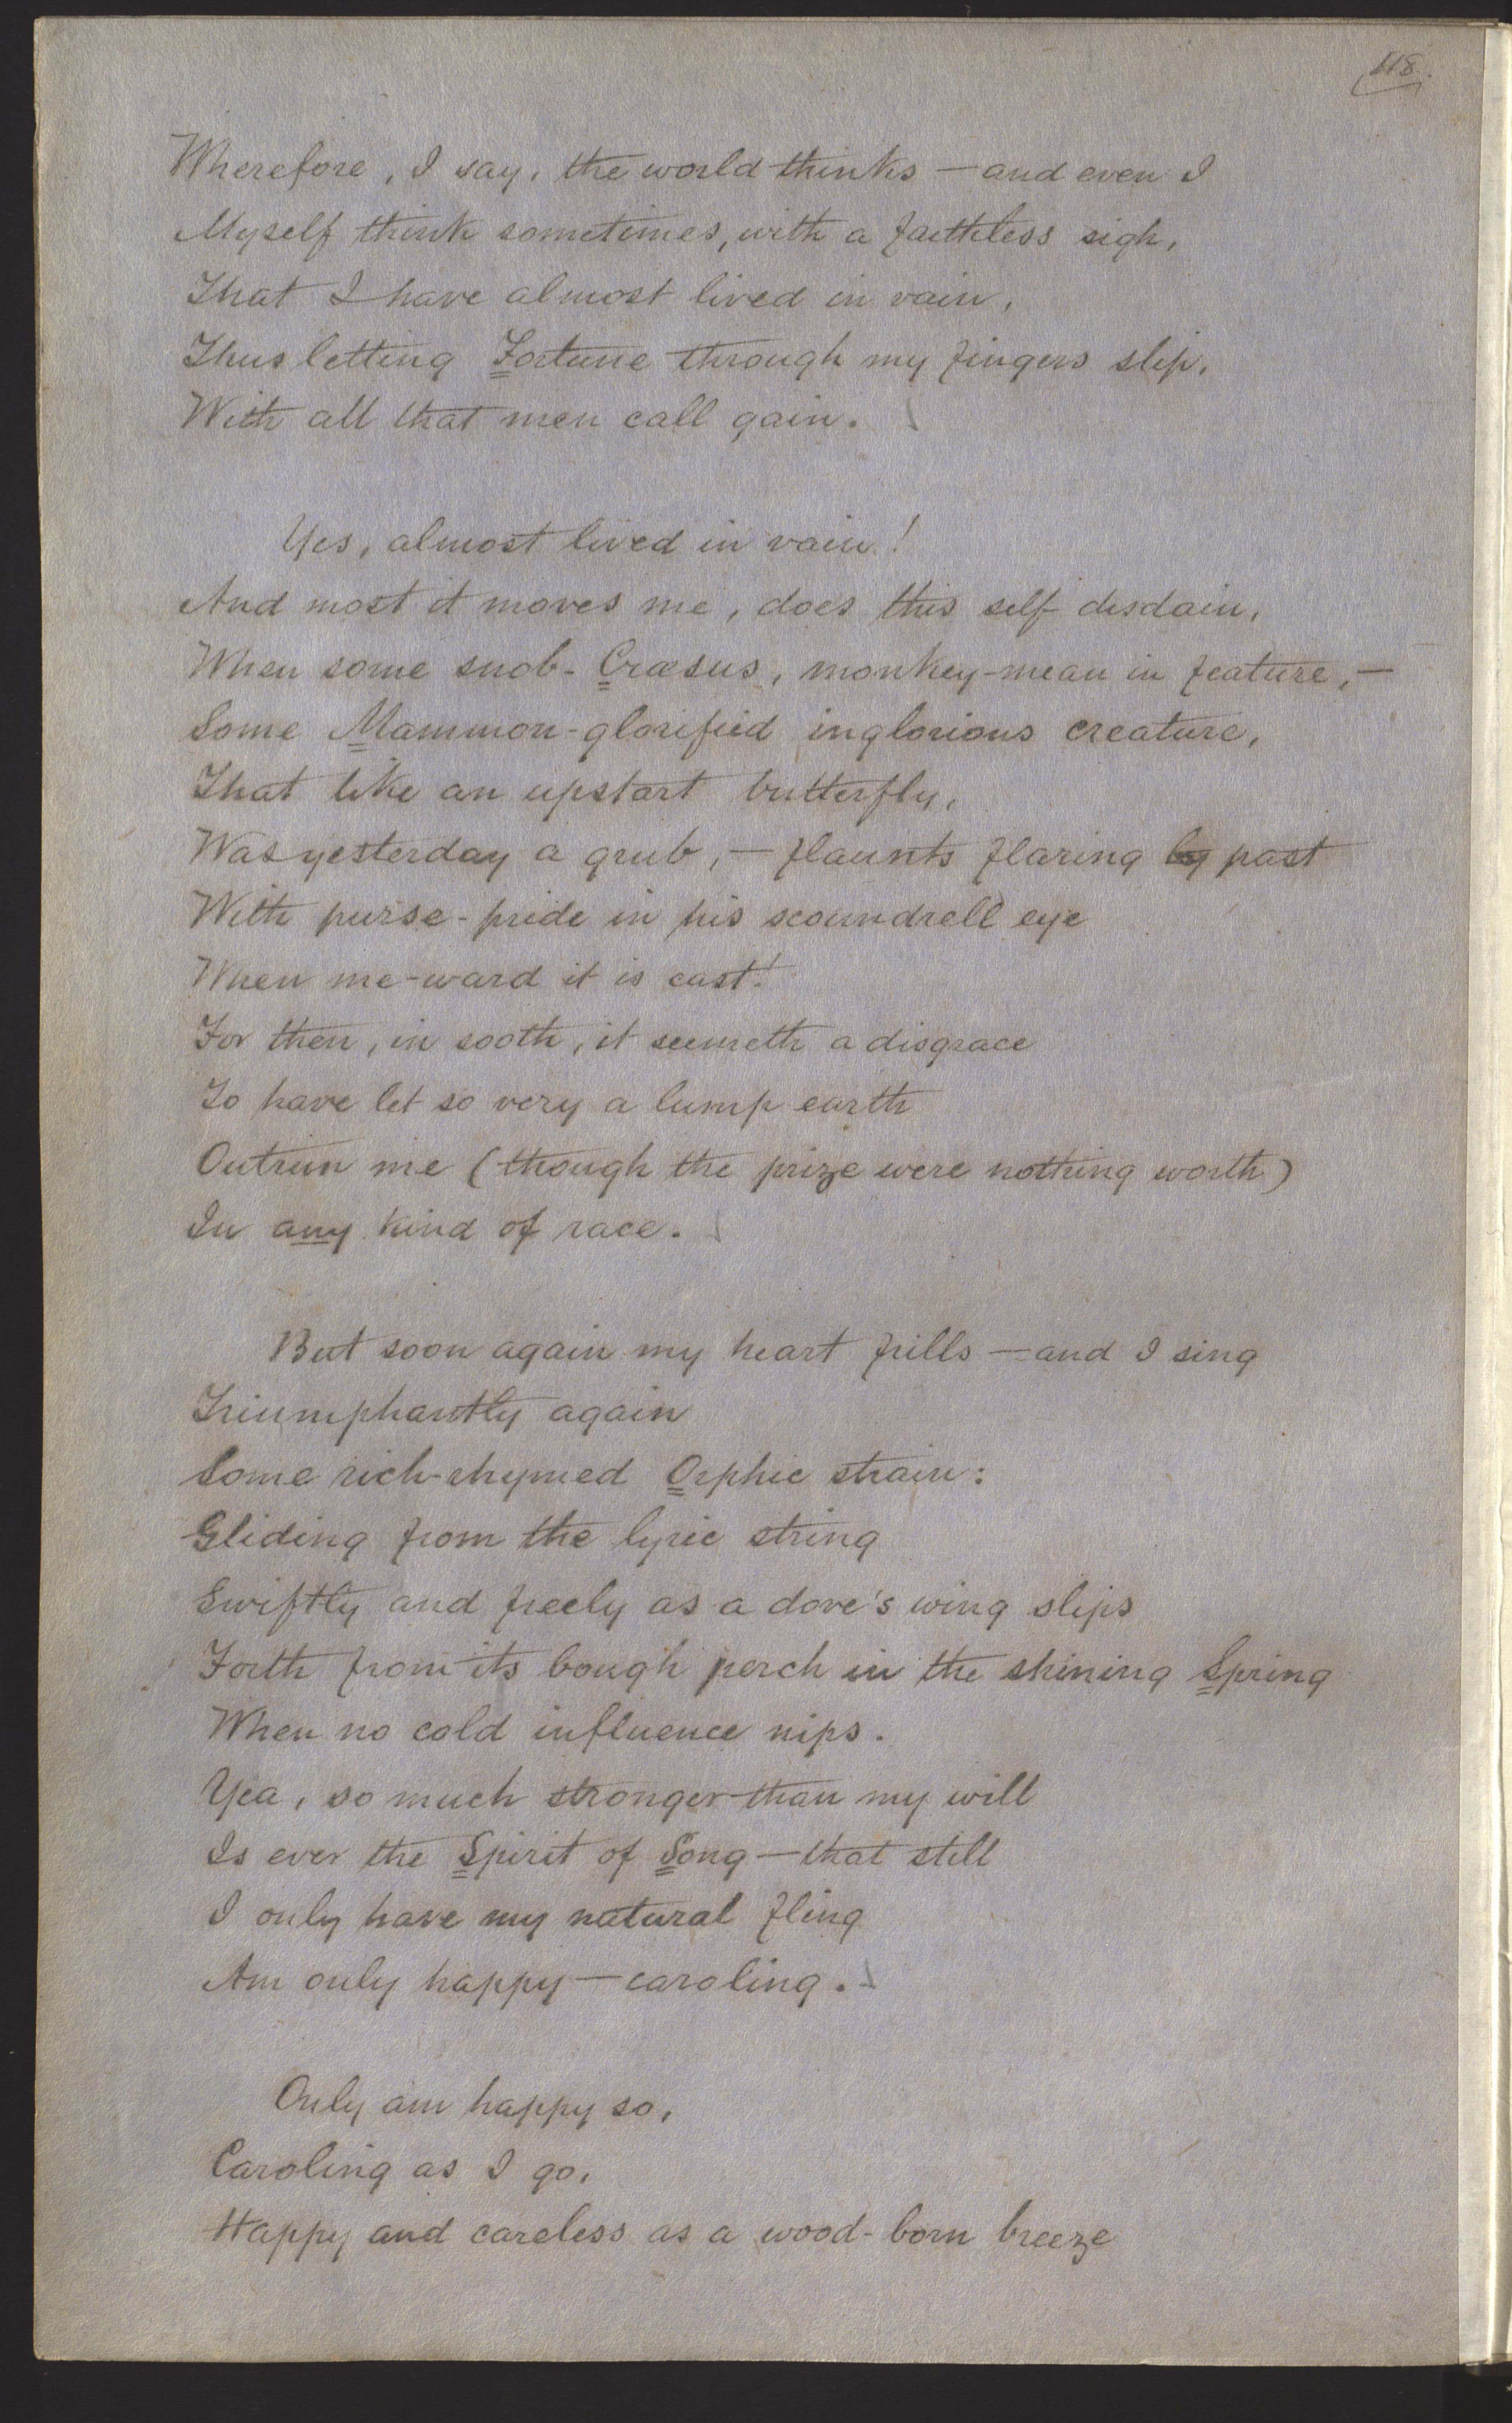 118.
Wherefore, I say, the world thinks — and even I
Myself think sometimes, with a faithless sigh,
That I have almost lived in vain,
Thus letting Fortune through my fingers slip,
With all that men call gain.
Yes, almost lived in vain!
And most it moves me, does this self disdain,
When some snob-Crœsus, monkey-mean in feature, —
Some Mammon-glorified inglorious creature,
That like an upstart butterfly,
Was yesterday a grub, — flaunts flaring by past
With purse-pride in his scoundrell eye
When me-ward it is cast!
For then, in sooth, it seemeth a disgrace
To have let so very a lump earth
Outrun me (though the prize were nothing worth)
In any kind of race.
But soon again my heart fills — and I sing
Triumphantly again
Some rich-rhymed Orphic strain:
Gliding from the lyric string
Swiftly and freely as a dove's wing slips
Forth from its bough perch in the shining Spring
When no cold influence nips.
Yea, so much stronger than my will
Is ever the Spirit of Song — that still
I only have my natural fling
Am only happy — caroling.
Only am happy so,
Caroling as I go,
Happy and careless as a wood-born breeze